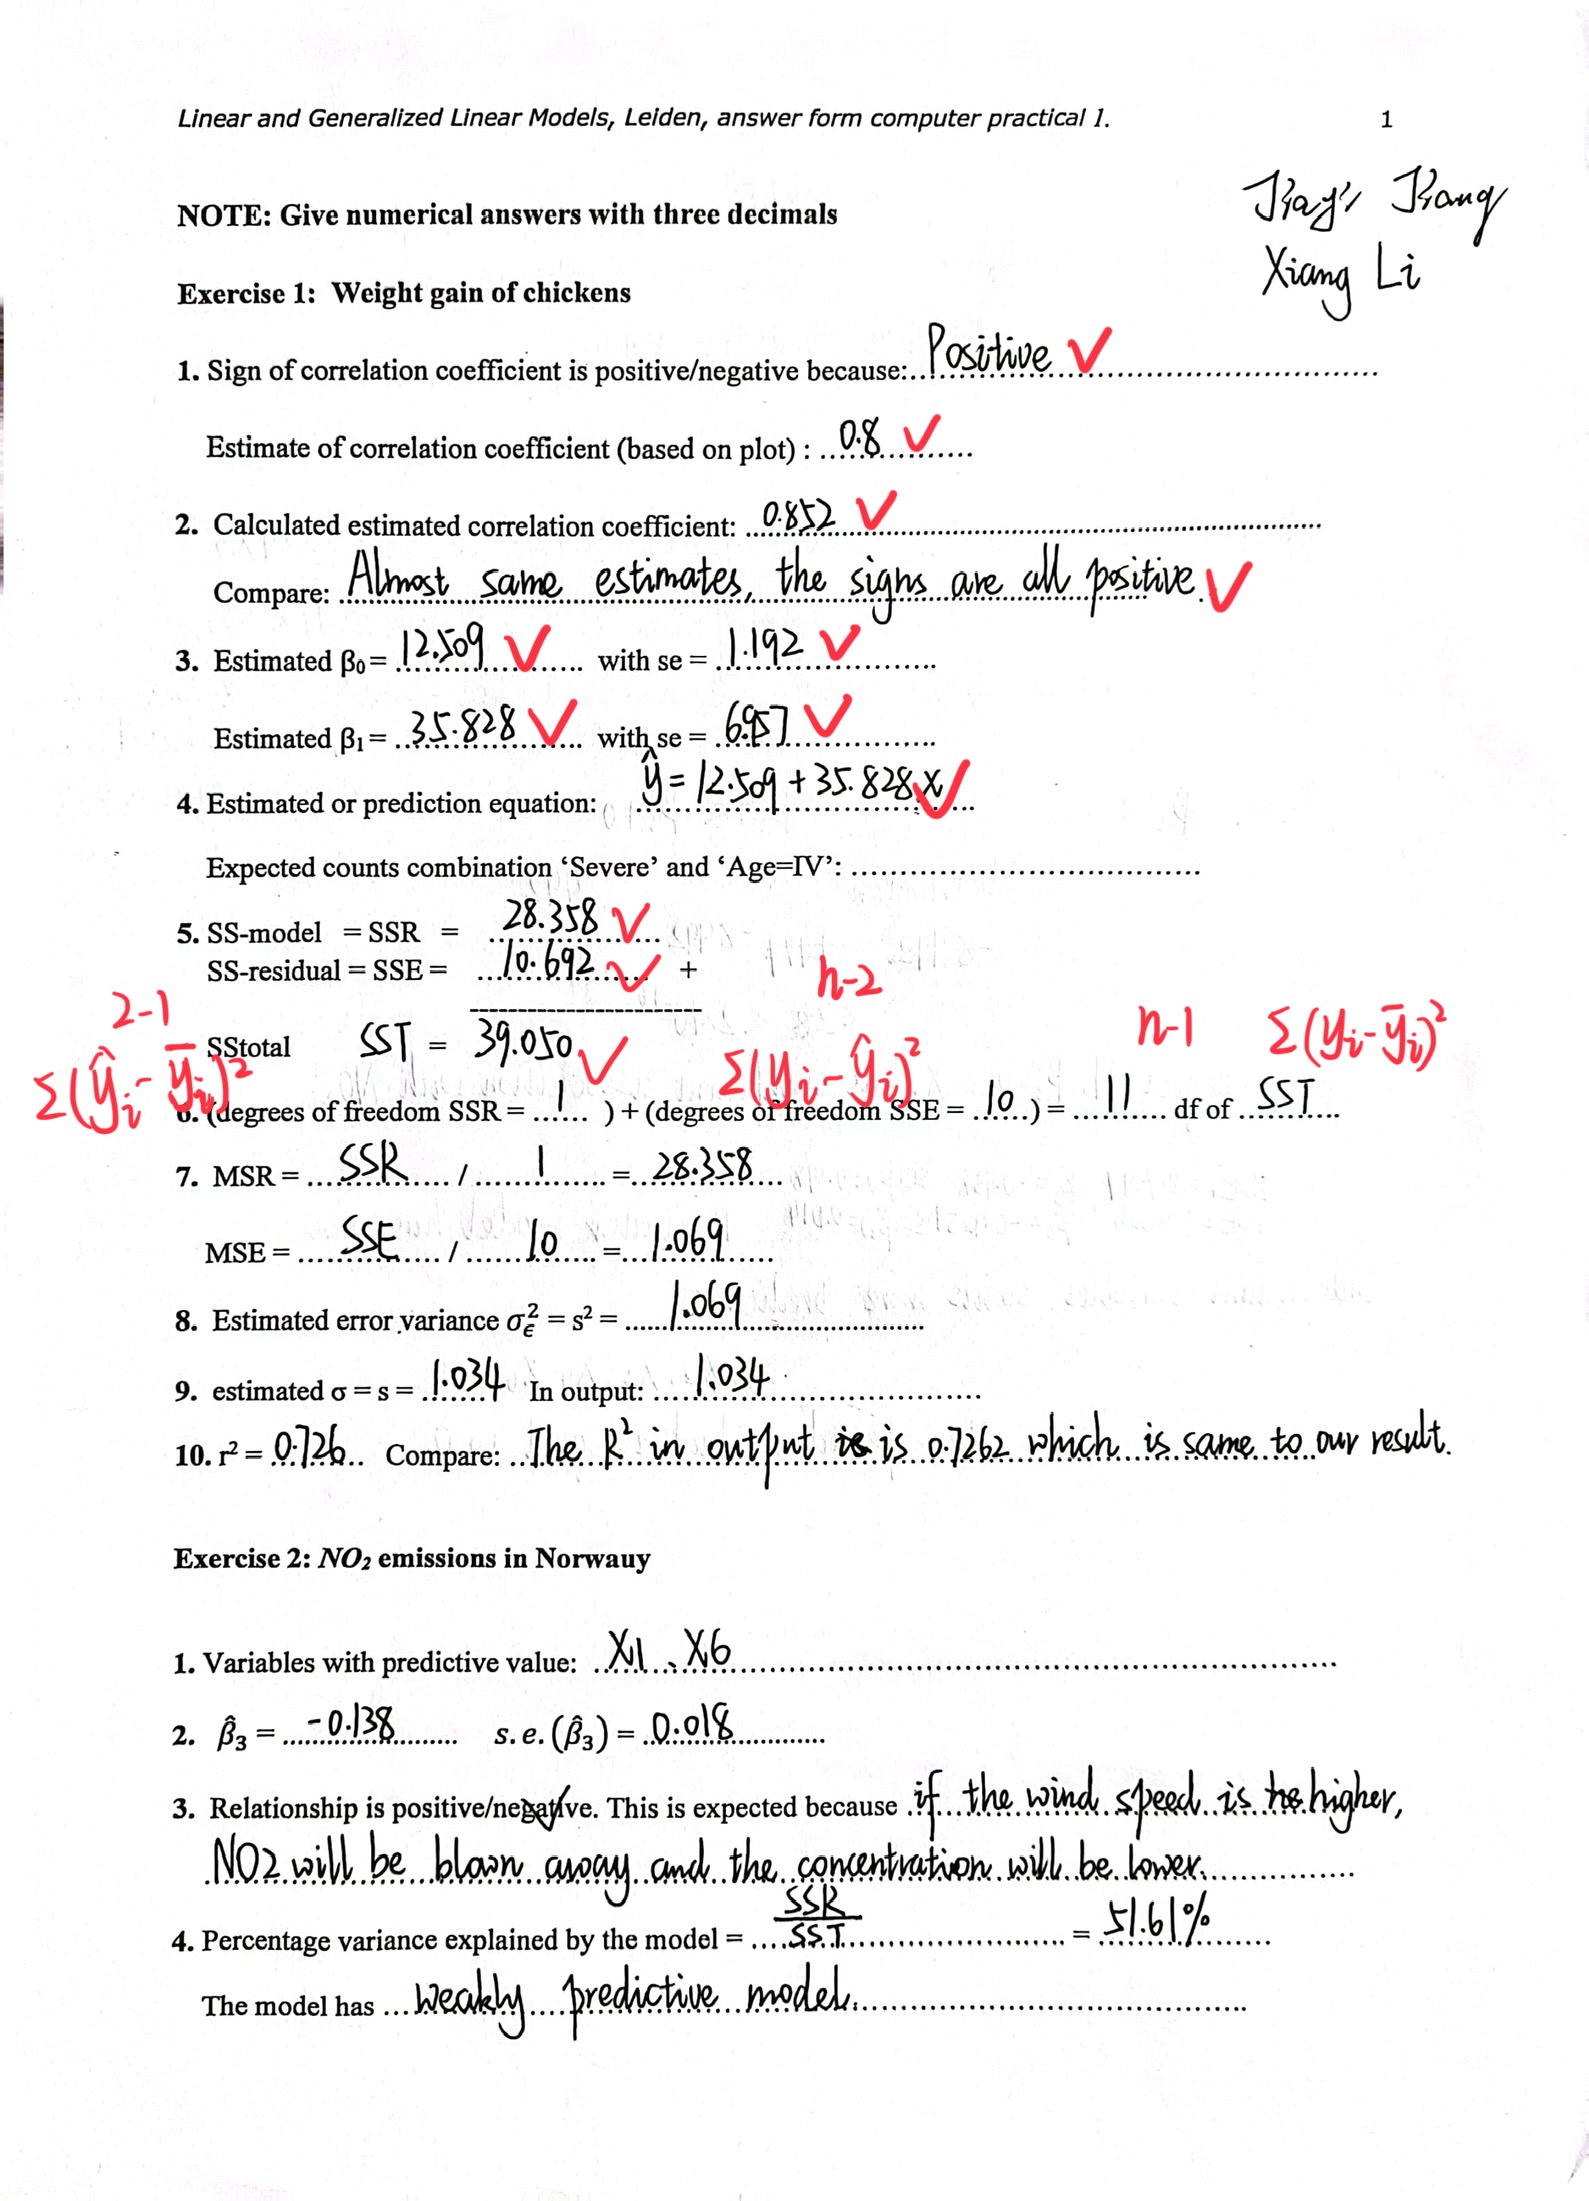 Linear and Generalized Linear Models, Leiden, answer form computer practical 1. 1
NOTE: Give numerical answers with three decimals
Xiang Li
Exercise 1: Weight gain of chickens
1. Sign of correlation coefficient is positive/negative because:..Positive ✓..........
Estimate of correlation coefficient (based on plot) : ..0.8.. ✓
2. Calculated estimated correlation coefficient: ..0.852.. ✓
Compare: Almost same estimates, the signs are all positive. ✓
3. Estimated β₀ = ..12.509.. ✓ with se = ..1.192.. ✓
Estimated β₁ = ..35.828.. ✓ with se = ..6.957.. ✓
4. Estimated or prediction equation: ŷ = 12.509 + 35.828x ✓
Expected counts combination ‘Severe’ and ‘Age=IV’: ....................................
5. SS-model = SSR = 28.358 ✓
SS-residual = SSE = 10.692 ✓ +
2-1 n-2
SStotal SST = 39.050 ✓ n-1 Σ(yi-ȳi)²
Σ(ŷi-ȳi)² Σ(yi-ŷi)²
6. (degrees of freedom SSR = ...1... ) + (degrees of freedom SSE = .10..) = ....11.... df of ..SST....
7. MSR = ...SSR.... / ....1.... = ..28.358....
MSE = ....SSE.... / ....10.... = ..1.069....
8. Estimated error variance σ²ϵ = s² = ....1.069....
9. estimated σ = s = .1.034 In output: ....1.034....
10. r² = 0.726.. Compare: ..The R² in output is is 0.7262 which is same to our result.
Exercise 2: NO₂ emissions in Norwauy
1. Variables with predictive value: ..X1、X6..........
2. β̂₃ = ..-0.138.. s.e.(β̂₃) = ..0.018..
3. Relationship is positive/negative. This is expected because .if the wind speed is he higher,
NO2 will be blown away and the concentration will be lower.
4. Percentage variance explained by the model = ....SSR/SST.... = 51.61%
The model has ...weakly predictive model..........